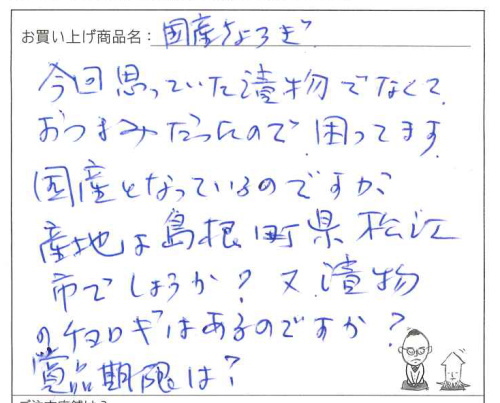 お買い上げ商品名：国産ちょろぎ
今回思っていた漬物でなくて
おつまみだったので困ってます
国産となっているのですが、
産地は島根町県松江
市でしょうか？又漬物
のチョロギはあるのですか？
賞品期限は？